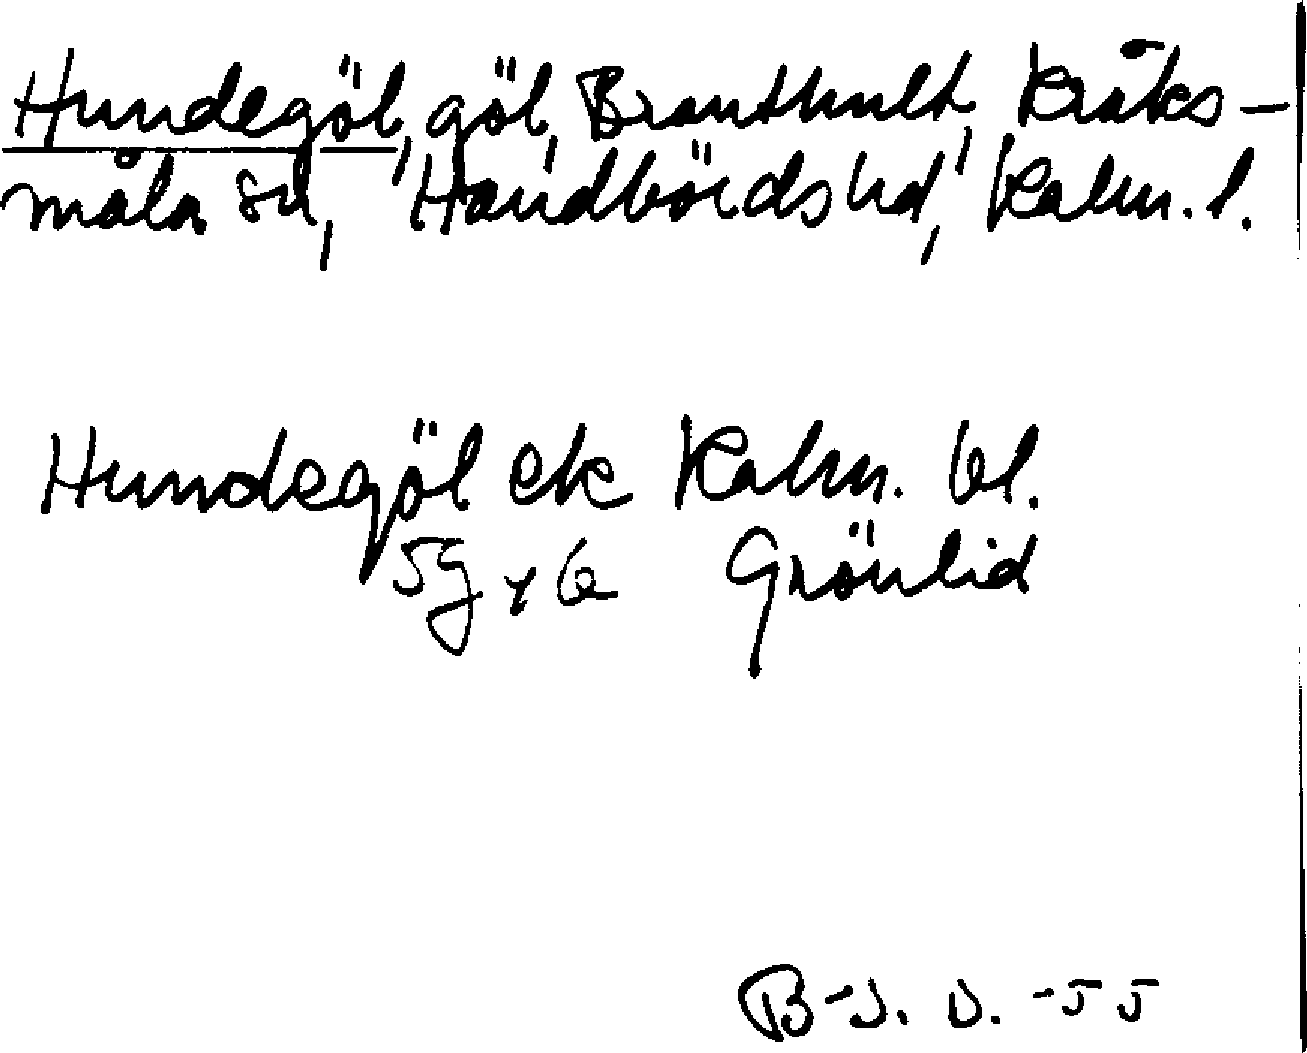 Hundegöl, göl, Branthult, Kråks-
måla sn, Handbörds hd, Kalm. l.
Hundegöl ek Kalm. bl.
5g x 6e Grönlid
B-J. D. -55